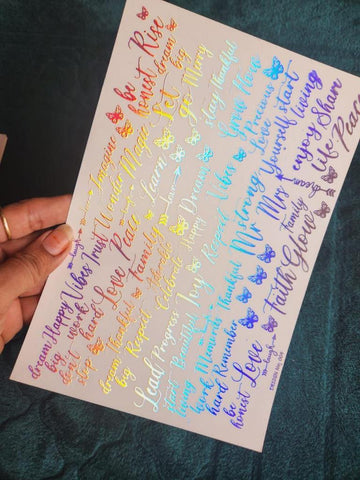 Imagine
be
honest
Rise
dream
big
Wonder Magic
Let
go
Many
laugh
dream
big
Happy
Vibes
Trust
Learn
stay
thankful
don't
stop
work
hard
Love
Peace
love
Dream
Grow
dream
big
thankful
Family
Happy
Vibes
Precious
Love
start
living
Respect
Celebrate
Respect
strong
Yourself
Lead
Progress
Joy
Mr
Mrs
enjoy
Share
start
living
Beautiful
Thankful
Family
life
Peace
work
hard
Memories
Remember
Faith
Glow
be
honest
Love
laugh